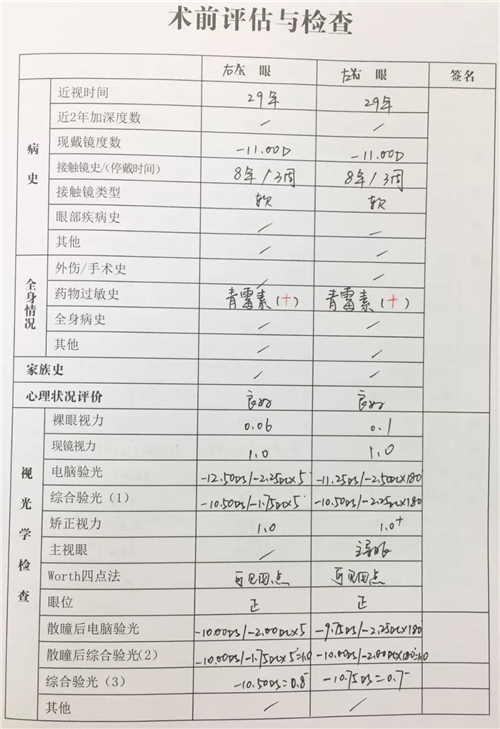 术前评估与检查
右眼 左眼 签名
病史
近视时间 29年 29年
近2年加深度数 / /
现戴镜度数 -11.00D -11.00D
接触镜史/(停戴时间) 8年/3周 8年/3周
接触镜类型 软 软
眼部疾病史 / /
其他 / /
全身情况
外伤/手术史 / /
药物过敏史 青霉素(+) 青霉素(+)
全身病史 / /
其他 / /
家族史 / /
心理状况评价 良好 良好
视光学检查
裸眼视力 0.06 0.1
现镜视力 1.0 1.0
电脑验光 -12.50DS/-2.25DC×5 -11.25DS/-2.50DC×180
综合验光（1） -10.50DS/-1.75DC×5 -10.50DS/-2.25DC×180
矫正视力 1.0 1.0+
主视眼 / 主导眼
Worth四点法 可见四点 可见四点
眼位 正 正
散瞳后电脑验光 -10.00DS/-2.00DC×5 -9.75DS/-2.25DC×180
散瞳后综合验光(2) -10.00DS/-1.75DC×5=1.0 -10.00DS/-2.00DC×180=1.0
综合验光（3） -10.50DS=0.8- -10.75DS=0.7-
其他 / /